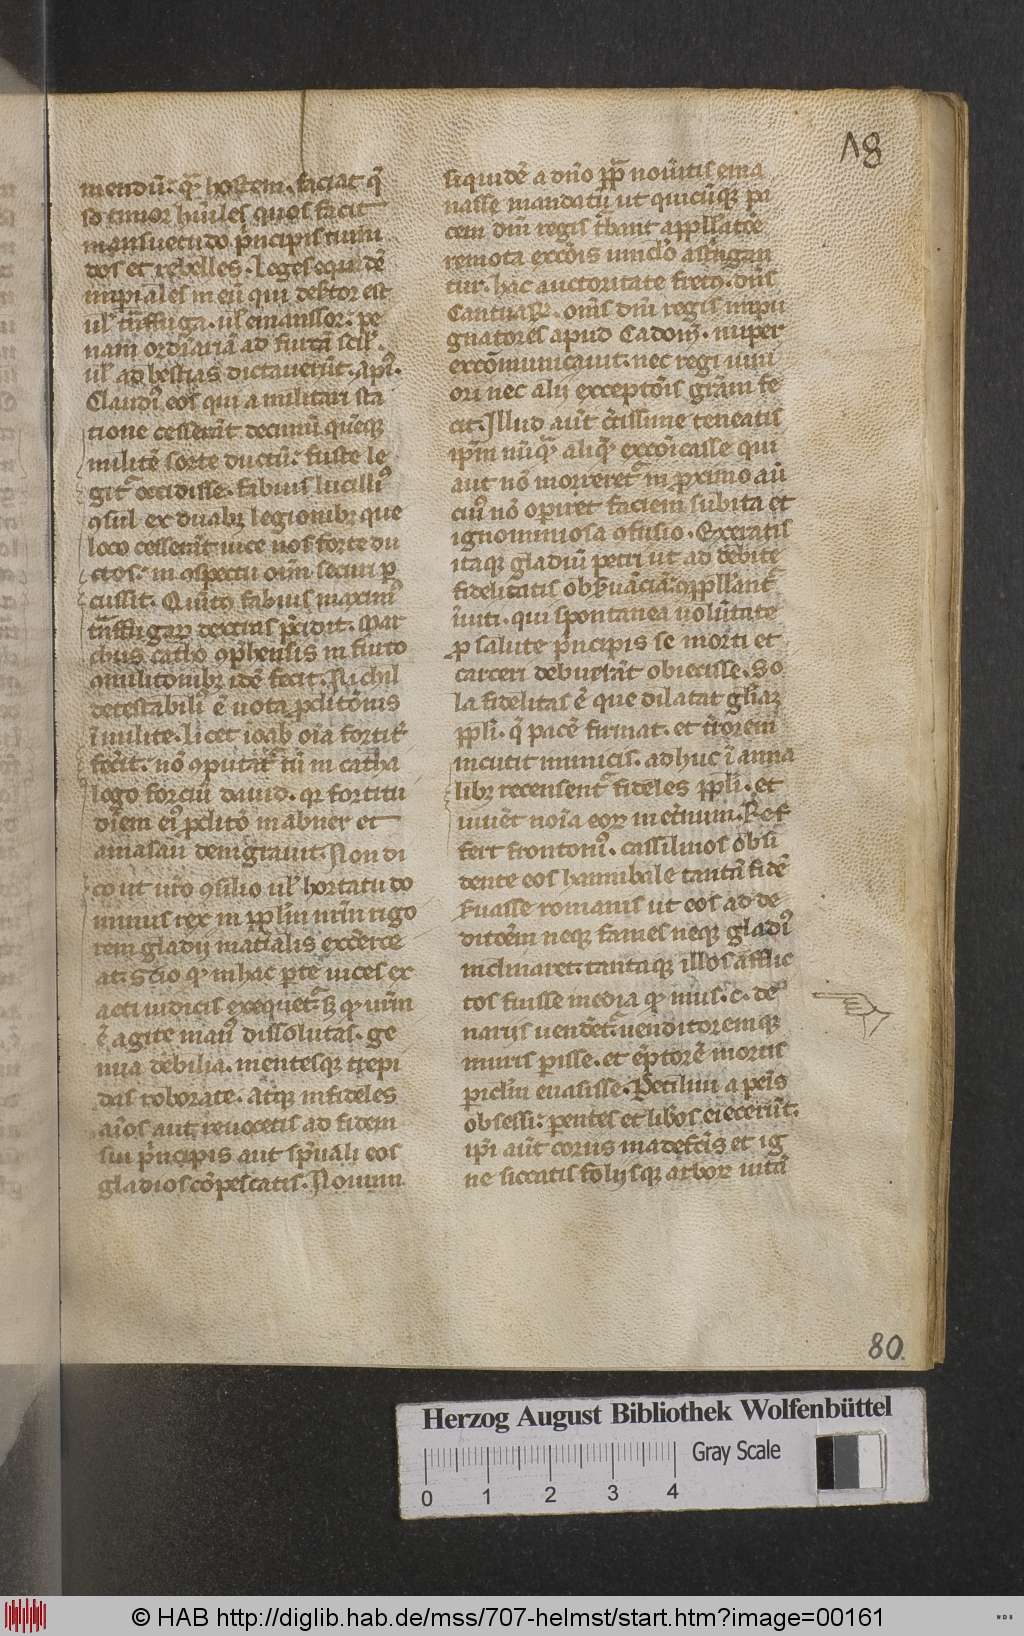 18
mendū. qͣ hostem. faciat qͥ
so timor hūiles quos facit
mansuetudo pͥncipis tumi
dos et rebelles. Leges equidē
imꝑiales in eū qui desͭtor est
ul̓ tͣnsfuga. ul̓ emanssor: pe
nam ordiariā ad furcā scil̓.
ul̓ ad bestias dictaverūt. Apꝰ.
Claudiꝰ eos qui a militari sta
tione cesserāt decimū quēque
militē sorte ductū: fuste le
gitͬ occidisse. fabius lucillꝰ
ꝯsul ex duabꝫ legionibꝫ que
loco cesserāt vice nos sorte du
ctos: in ꝯspectu oīm securi ꝑ
cussit. Quīto fabius maximꝰ
tͣnsfugaꝝ dextras pͥcidit. Mar
chus catho ꝯphensis in furto
ꝯmilitonibꝫ idē fecit. Nichil
detestabiliꝰ ē nota ꝓditōnis
ī milite. licet ioab oīa fortit̓
fecīt: nō ꝯputat̓ tn̄ in catha
logo forciū david. qꝛ fortitu
diem eiꝰ ꝓditō in abner et
amasaū denigravit. Non di
co ut vr̄o ꝯsilio ul̓ hortatu do
minus rex in ppl̓m nr̄m rigo
rem gladij mat̓ialis exerce
at. Scio qꝫ in hac ꝑte vices ex
acti iudicis exequetͬ. sꝫ qꝫ vr̄m
ē agite manꝰ dissolutas. ge
nua debilia. mentesque trepi
das roborate. atque infideles
aīos aut revocetis ad fidem
sui pͥncipis aut spūali eos
gladios cōpescatis. Novum
siquidē a dn̄o pp̄ novitis ema
nasse mandatū ut quicūque pa
cem dn̄i regis tͬbant appll̓atōe
remota excōis vinclo astringan
tur. hac auctoritate freto. dn̄s
Cantuar̄. om̄s dn̄i regis impu
gnatores apud Cadomū. nuper
excōmunicavit. nec regi iuni
ori nec alij exceptōis grām fe
cit. Illud aūt cͬtissime teneatis
ip̄m nūqͣ aliqͫ excōicasse qui
aut nō morreretͬ in proximo aū
ciuꝰ nō operiret faciem subita et
ignominiosa ꝯfusio. Exeratis
itaque gladiū petri ut ad debite
fidelitatis obsvāciā. ꝯpellantͬ
īviti. qui spontanea volūtate
ꝓ salute pͥncipis se morti et
carceri debuerāt obiecisse. So
la fidelitas ē que dilatat gl̓iaꝫ
ppl̓i. qͥ pacē firmat. et trorem
incutit inimicis. adhuc ī anna
libꝫ recensentͬ fideles ppl̓i. et
vivēt noīa eoꝝ in etͬnum. Ref
fert frontonꝰ. cassilinos obsi
dente eos hannibale tantā fidē
svasse romanis ut eos ad de
ditōēm neque fames neque gladiꝰ
inclinaret. tantaque illos afflic
tos fuisse media qꝫ mus. c. de
narijs vendetͬ venditoremque
muris perisse. et ēptorē mortis
piclm evasisse. Petilini a penis
obsessi: ꝑentes et libos eiecerūt.
ip̄i aūt corijs madefcīs et ig
ne siccatis folijsque arboꝝ vitā
80.
Herzog August Bibliothek Wolfenbüttel
Gray Scale
0 1 2 3 4
© HAB http://diglib.hab.de/mss/707-helmst/start.htm?image=00161